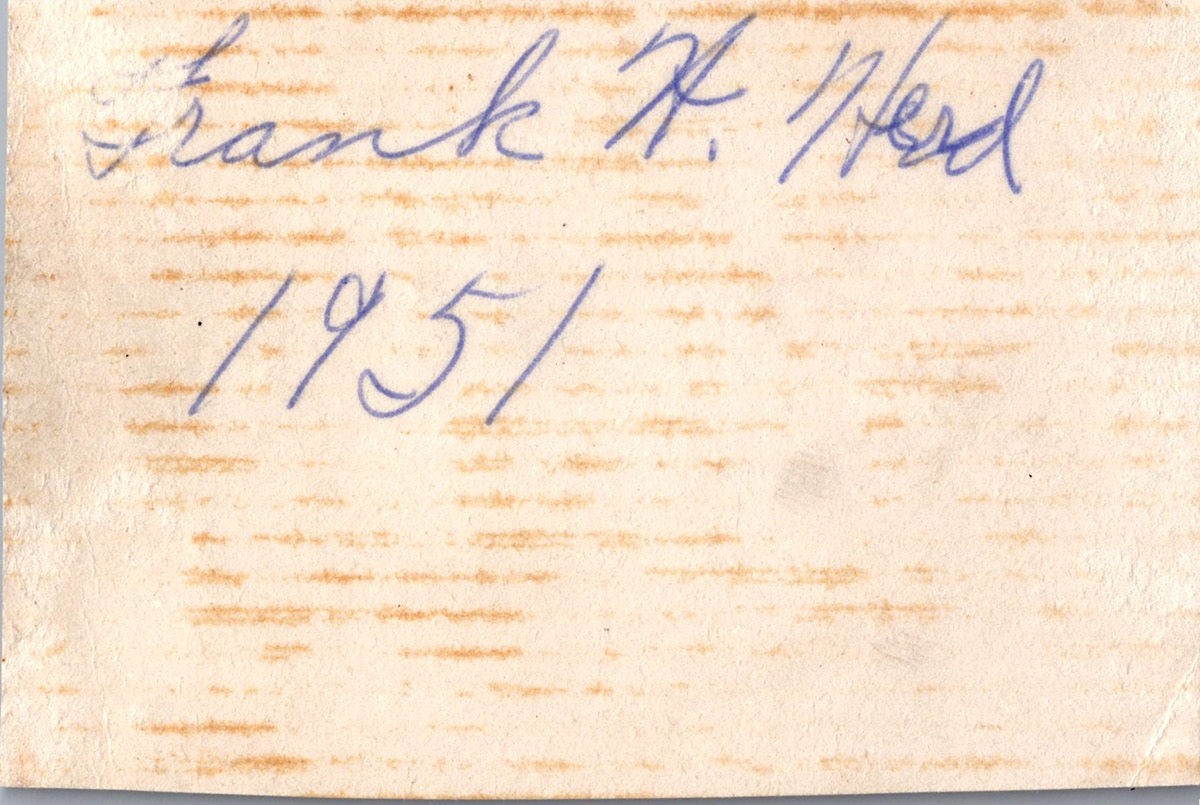 Frank H. Herd
1951